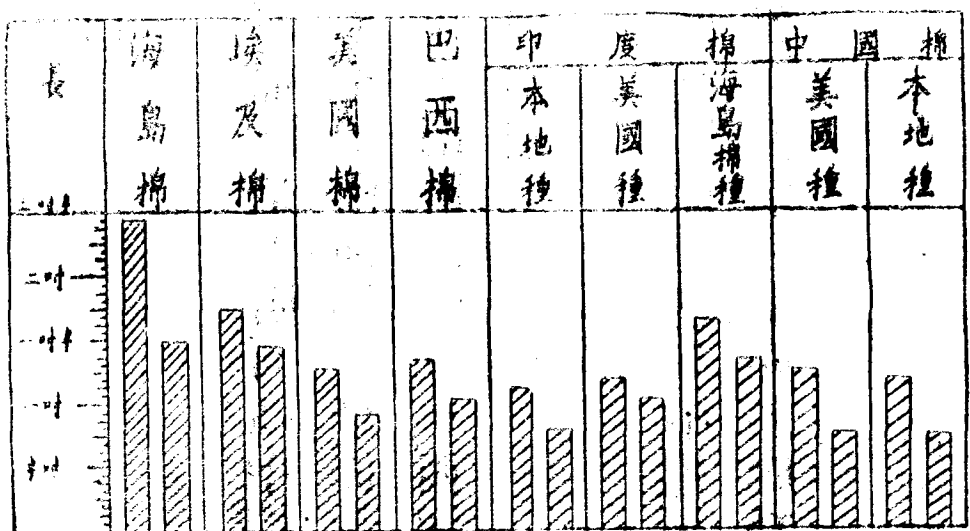 長
海島棉
埃及棉
美國棉
巴西棉
印度棉
本地種
美國種
海島棉種
中國棉
美國種
本地種
二吋半
二吋
一吋半
一吋
半吋